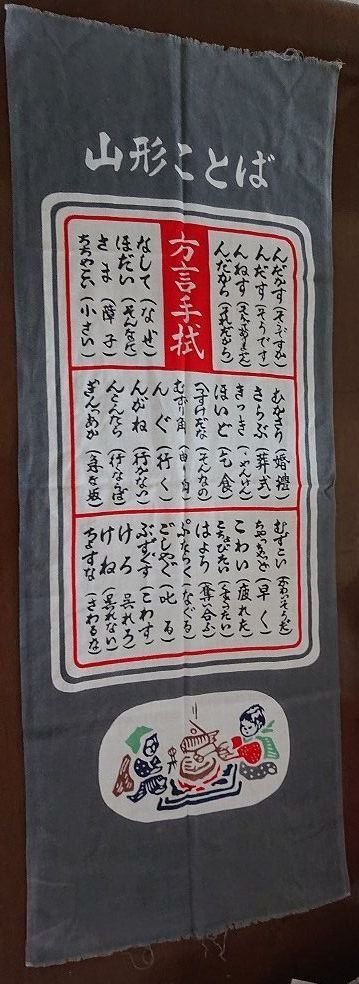 山形ことば
んだがす（そうですか）
んだす（そうです）
んねす
んだから（それだから）
方言手拭
なして（なぜ）
ほだい（そんなに）
さま（障子）
ちちゃこい（小さい）
むがさり（婚禮）
さらぶ（葬式）
きっき（じゃんけん）
ほいど（乞食）
へすけだな（そんなの）
むずり角（曲り角）
んぐ（行く）
んがね（行かない）
んんだら（行くならば）
むずこい（かわいそうだ）
ちゃっちゃど（早く）
こわい（疲れた）
ちょぴたい（つめたい）
はより（奪い合ふ）
ぶたらぐ（なぐる）
ごしゃぐ（叱る）
ぶずくす（こわす）
けろ（呉れろ）
けね（呉れない）
ちょすな（さわるな）